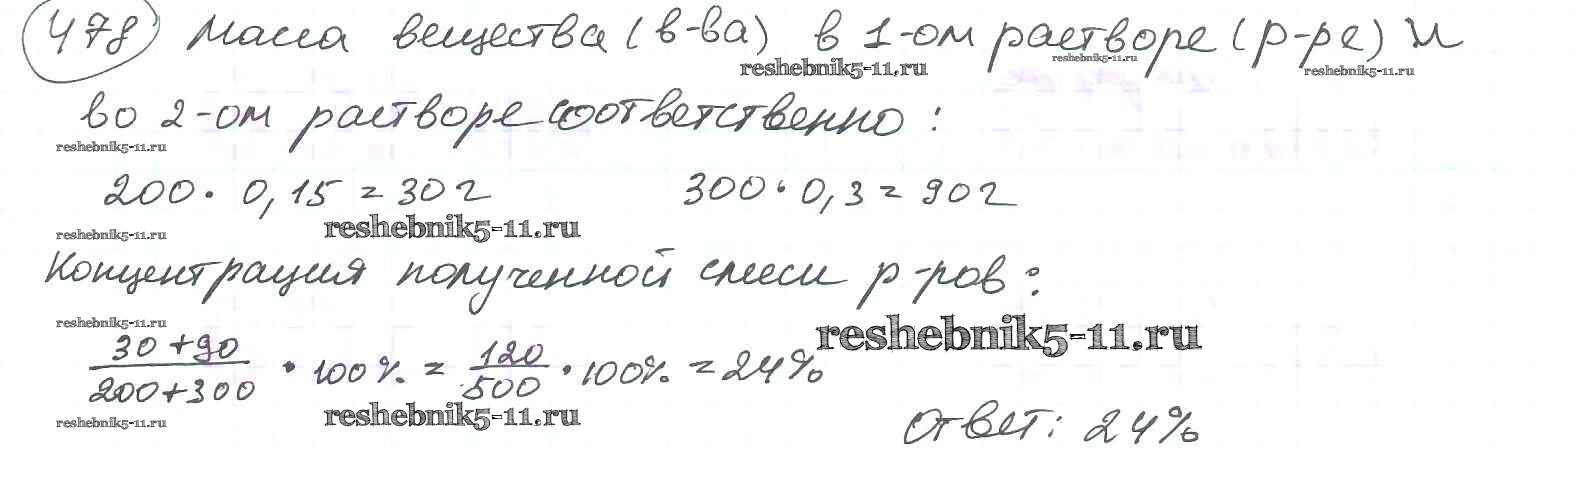 478 Масса вещества (в-ва) в 1-ом растворе (р-ре) и
reshebnik5-11.ru reshebnik5-11.ru reshebnik5-11.ru
во 2-ом растворе соответственно:
reshebnik5-11.ru
200 · 0,15 = 30 г 300 · 0,3 = 90 г
reshebnik5-11.ru reshebnik5-11.ru
Концентрация полученной смеси р-ров:
reshebnik5-11.ru reshebnik5-11.ru
30+90 / 200+300 · 100% = 120 / 500 · 100% = 24%
reshebnik5-11.ru reshebnik5-11.ru
Ответ: 24%